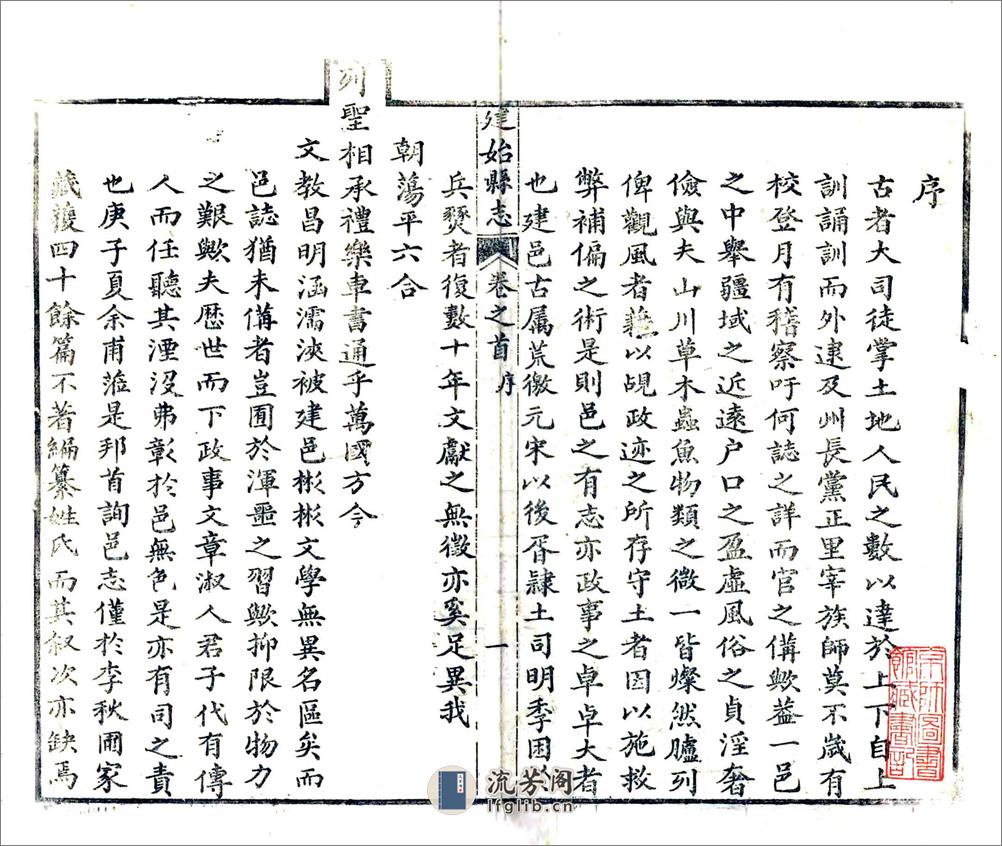 序
古者大司徒掌土地人民之數以達於上下自上
訓誦訓而外逮及州長黨正里宰族師莫不歲有
校登月有稽察吁何誌之詳而官之備歟蓋一邑
之中舉疆域之近遠户口之盈虛風俗之貞淫奢
儉與夫山川草木蟲魚物類之微一皆燦然臚列
俾觀風者藉以覘政迹之所存守土者因以施救
弊補偏之術是則邑之有志亦政事之卓卓大者
也建邑古属荒徼元宋以後胥隷土司明季困於
建始縣志 卷之首 序 一
兵燹者復數十年文獻之無徵亦奚足異我
朝蕩平六合
列聖相承禮樂車書通乎萬國方今
文教昌明涵濡浹被建邑彬彬文學無異名區矣而
邑誌猶未備者豈囿於渾噩之習歟抑限於物力
之艱歟夫歷世而下政事文章淑人君子代有傳
人而任聽其湮沒弗彰於邑無色是亦有司之責
也庚子夏余甫蒞是邦首詢邑志僅於李秋圃家
藏獲四十餘篇不著編纂姓氏而其叙次亦缺焉
流芳阁
lfglib.cn